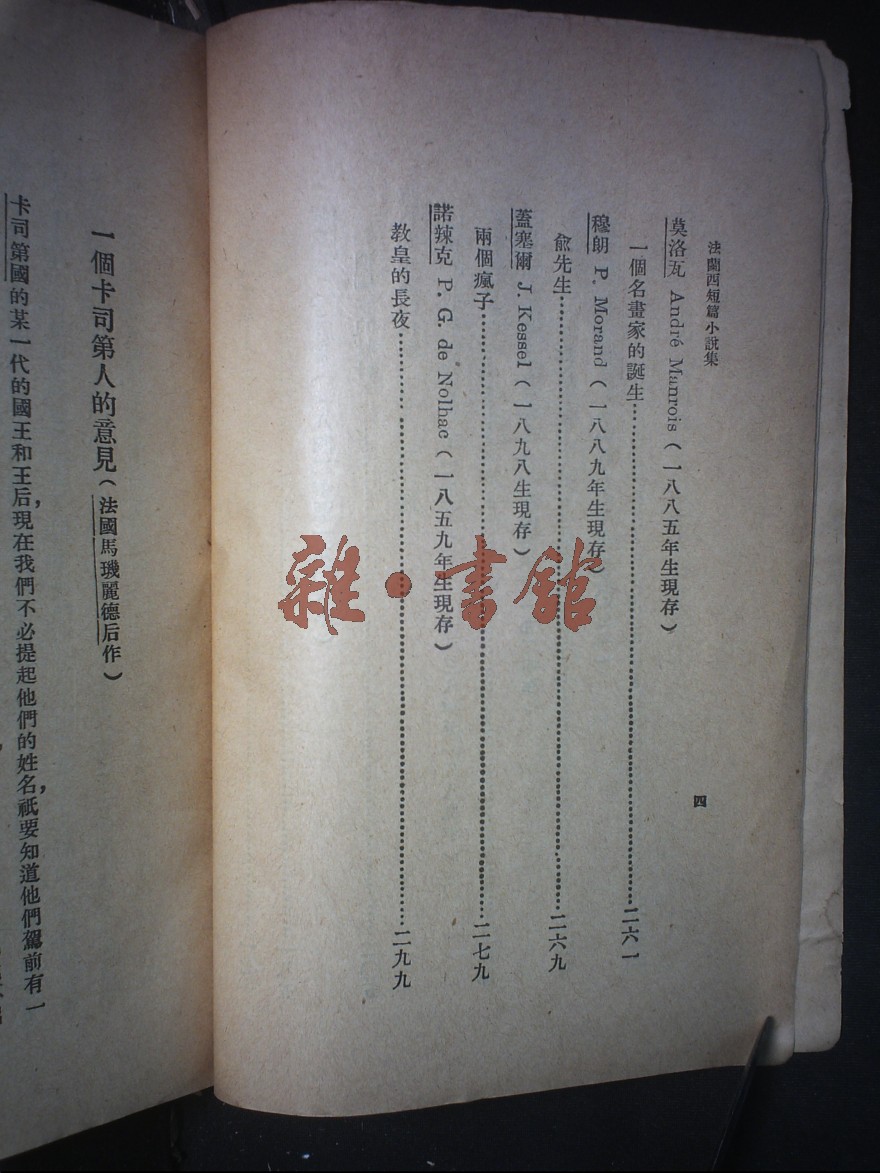 法蘭西短篇小說集
莫洛瓦 André Manrois（一八八五年生現存）
一個名畫家的誕生……二六一
穆朗 P. Morand（一八八九年生現存）
兪先生……二六九
蓋塞爾 J. Kessel（一八九八生現存）
兩個瘋子……二七九
諾辣克 P. G. de Nolhac（一八五九年生現存）
教皇的長夜……二九九
四
雜·書館
一個卡司第人的意見（法國馬璣麗德后作）
卡司第國的某一代的國王和王后，現在我們不必提起他們的姓名，祇要知道他們駕前有一